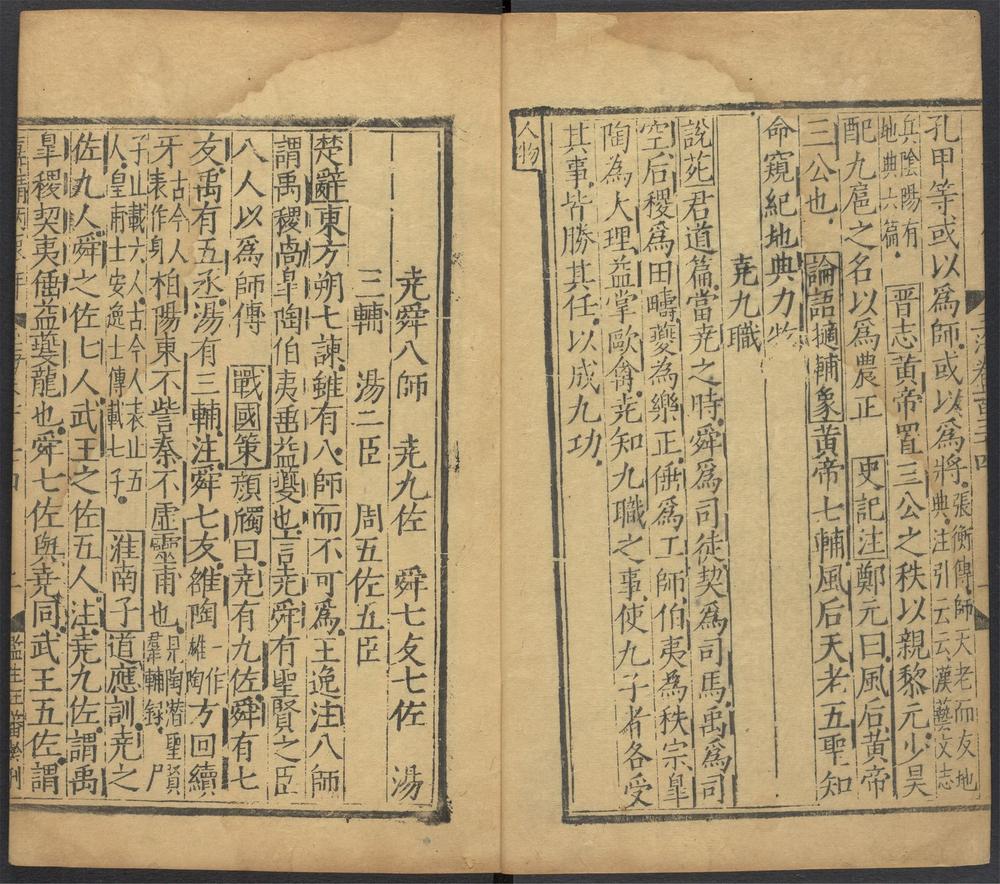 孔甲等或以爲師或以爲將張衡傳師天老而友地典注引云云漢藝文志
兵陰陽有地典六篇晉志黃帝置三公之秩以親黎元少昊
配九扈之名以爲農正史記注鄭元曰風后黃帝
三公也論語擿輔象黃帝七輔風后天老五聖知
命窺紀地典力牧
堯九職
說苑君道篇當堯之時舜爲司徒契爲司馬禹爲司
空后稷爲田疇夔為樂正倕爲工師伯夷為秩宗皐
陶為大理益掌敺禽堯知九職之事使九子者各受
其事皆勝其任以成九功
人物
堯舜八師 堯九佐 舜七友七佐 湯
三輔 湯二臣 周五佐五臣
楚辭東方朔七諫雖有八師而不可爲王逸注八師
謂禹稷卨皐陶伯夷倕益夔也言堯舜有聖賢之臣
八人以爲師傅戰國策顔觸曰堯有九佐舜有七
友禹有五丞湯有三輔注舜七友雒陶一作雄陶方回續
牙古今人表作身柏陽東不訾秦不虛靈甫也見陶潛聖賢羣輔錄尸
子止載六人古今人表止五人皇甫士安逸士傳載七子淮南子道應訓堯之
佐九人舜之佐七人武王之佐五人注堯九佐謂禹
皐稷契夷倕益夔龍也舜七佐與堯同武王五佐謂